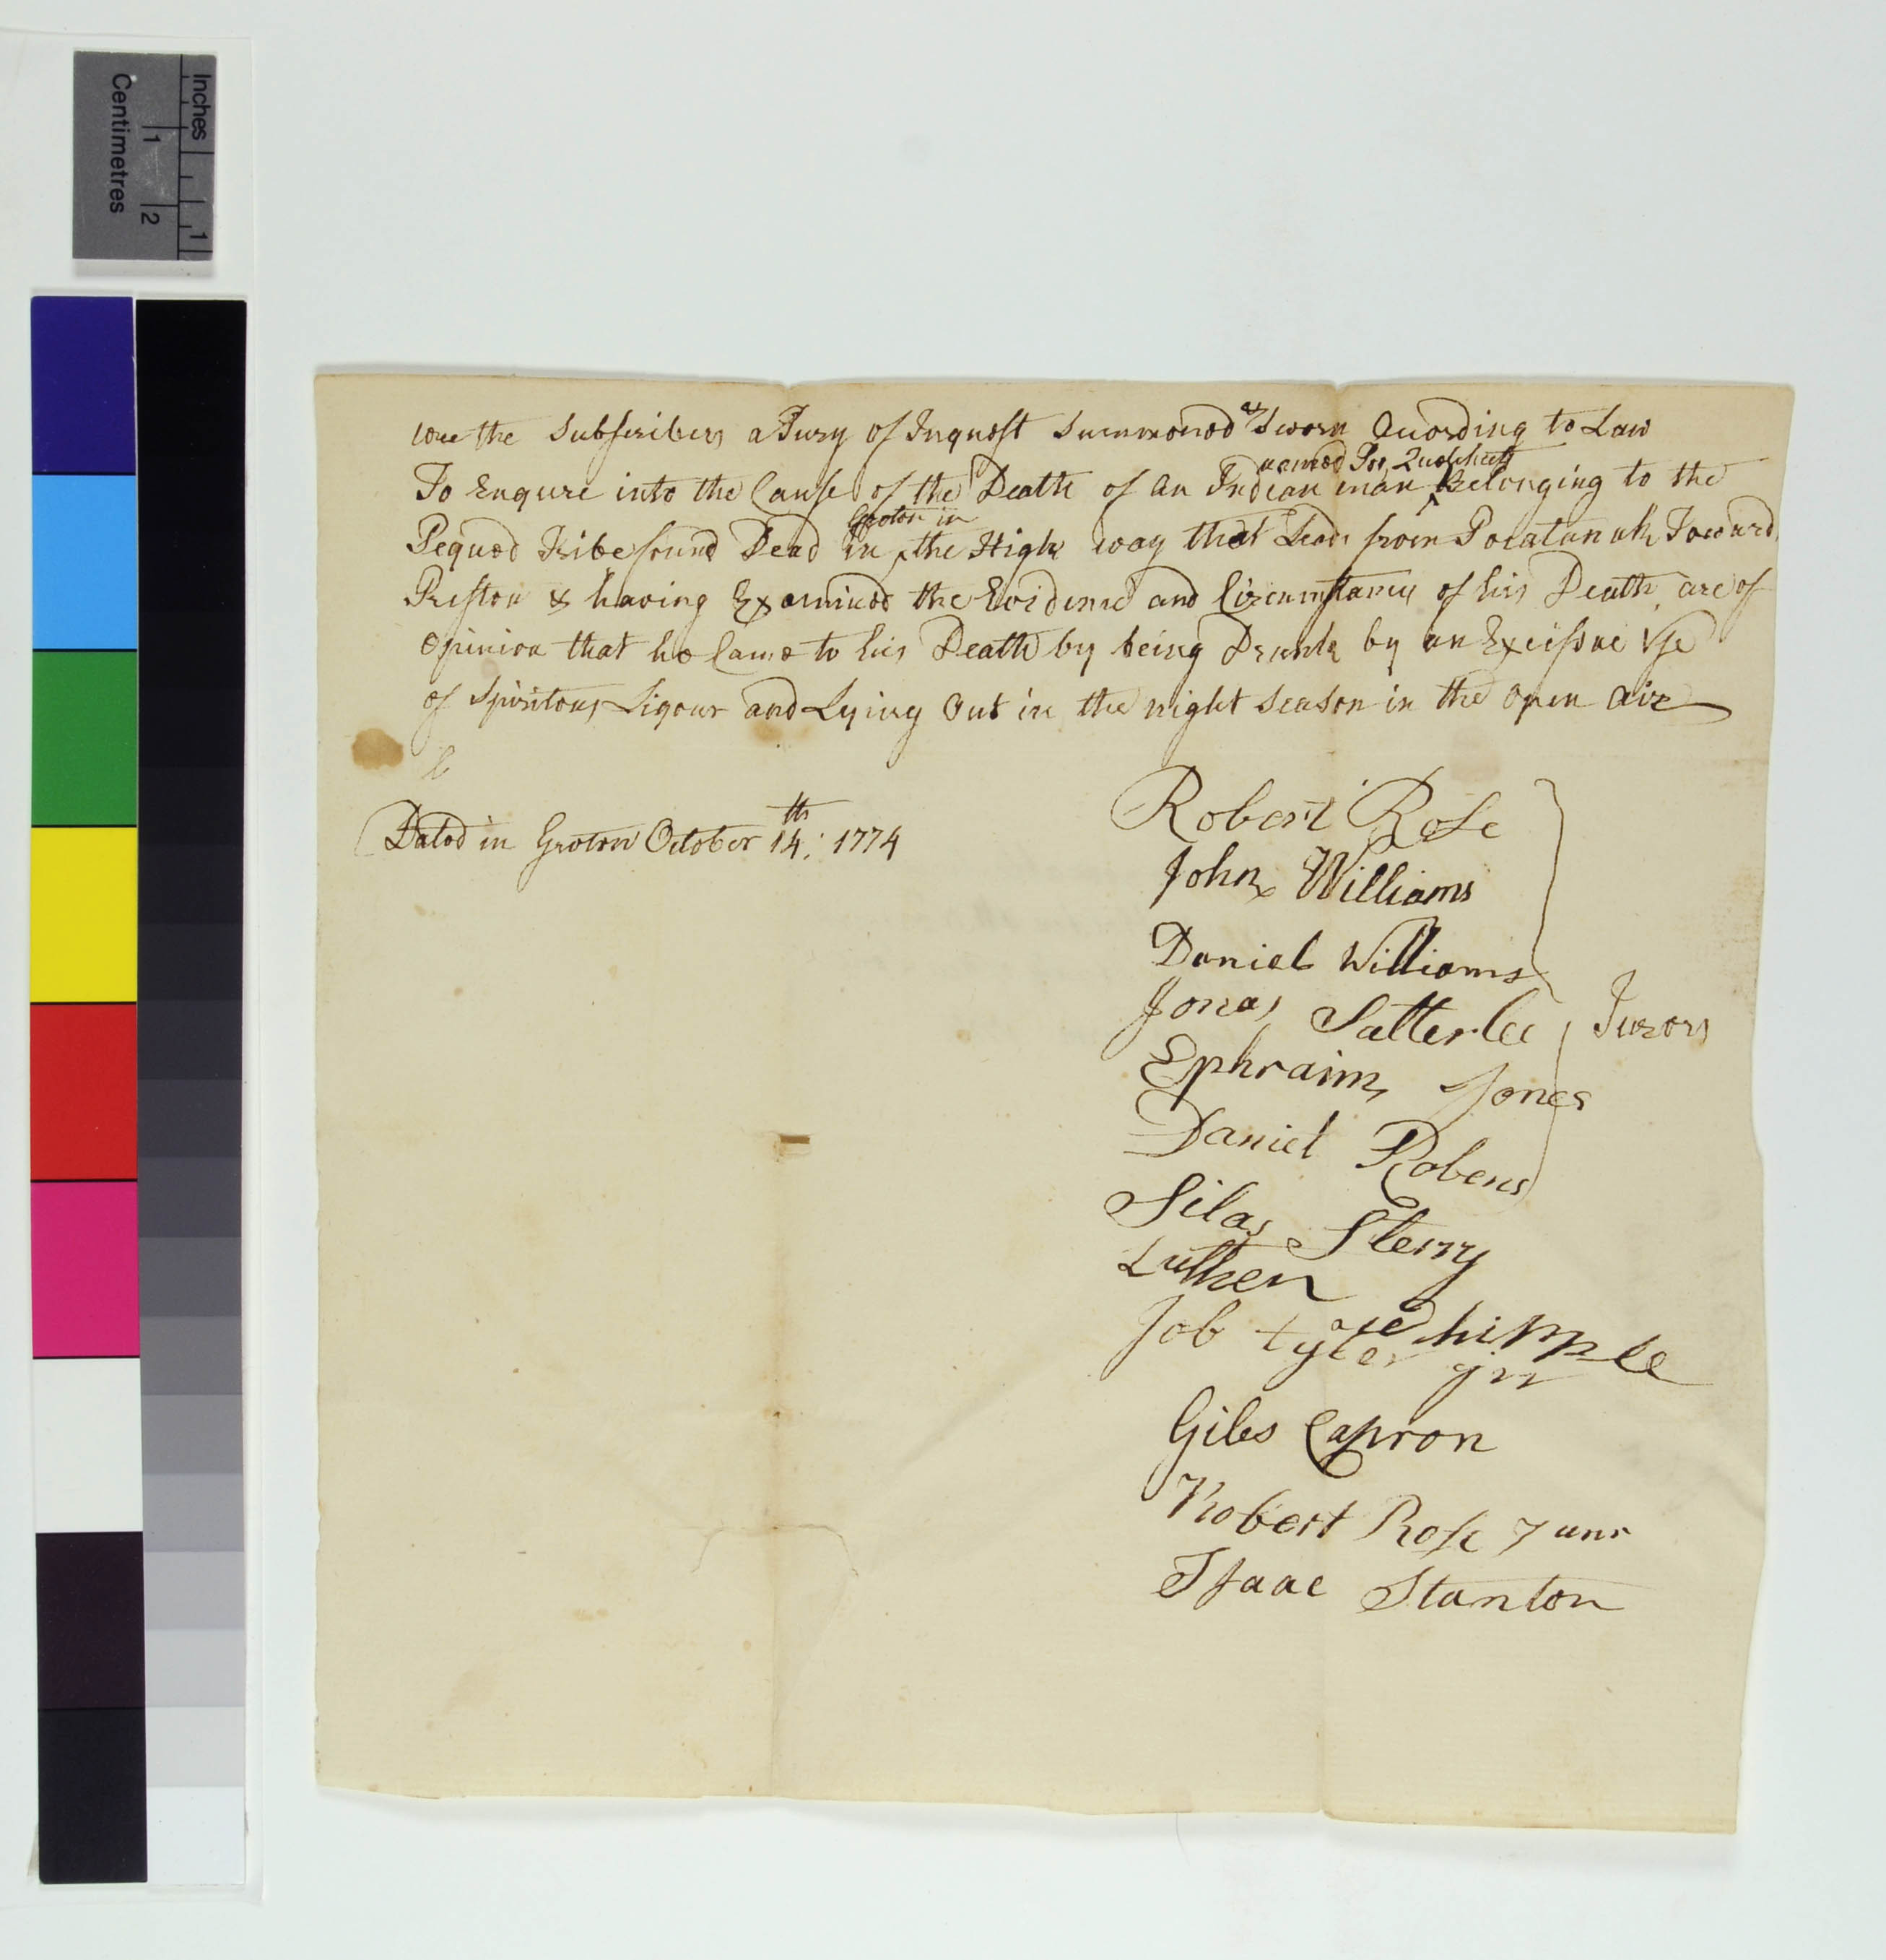 Inches
1
Centimetres
1 2
wee the Subscribers a Jury of Inquest Summonod & Sworn Acording to Law
named Joe Quocheets
To Enqure into the Cause of the Death of an Indian man ^ Belonging to the
Groton in
Pequod Tribe found Dead in ^ the High way that Leads from Pocatanuk Toward
Preston & having Examinod the Evidence and Circumstances of his Death are of
Opinion that he Came to his Death by being Drunk by an Excissue Use
of Spiritous Liqour and Lying Out in the night Season in the Open Air
Dated in Groton October 14th: 1774
Robert Rose
John Williams
Daniel Williams
Jonas Satterlee
Jurors
Ephraim Jones
Daniel Robens
Silas Sterry
Luther
whipple
Job tyler jnr
Giles Capron
Robert Rose Junr
Isaac Stanton